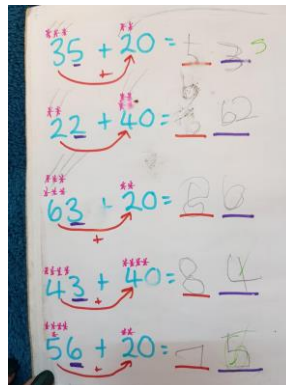 35 + 20 = 5 3 5
22 + 40 = 6 62
63 + 20 = 8 6
43 + 40 = 8 4
56 + 20 = 7 5